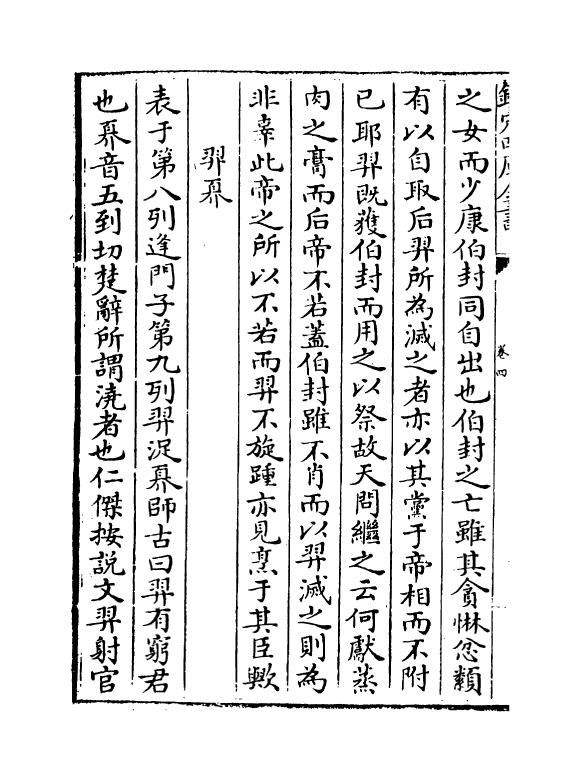 欽定四庫全書
卷四
之女而少康伯封同自出也伯封之亡雖其貪惏忿纇
有以自取后羿所為滅之者亦以其黨于帝相而不附
已耶羿既獲伯封而用之以祭故天問繼之云何獻蒸
肉之膏而后帝不若蓋伯封雖不肖而以羿滅之則為
非辜此帝之所以不若而羿不旋踵亦見烹于其臣歟
羿奡
表于第八列逢門子第九列羿浞奡師古曰羿有窮君
也奡音五到切楚辭所謂澆者也仁傑按說文羿射官